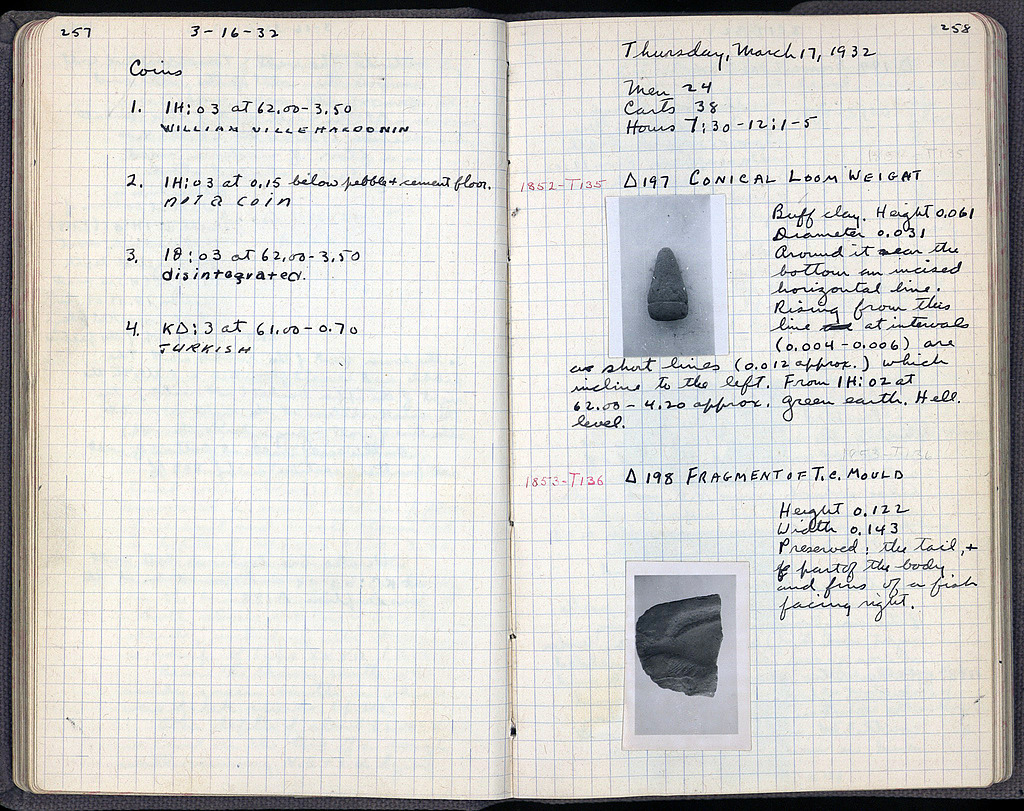 257
3-16-32
Coins
1. 1H:03 at 62.00-3.50
WILLIAM VILLEHARDOUIN
2. 1H:03 at 0.15 below pebble + cement floor.
not a coin
3. 1Θ:03 at 62.00-3.50
disintegrated.
4. KΔ:3 at 61.00-0.70
TURKISH
258
Thursday, March 17, 1932
Men 24
Carts 38
Hours 7:30-12:1-5
1852-T135
1852-T135 Δ197 CONICAL LOOM WEIGHT
Buff clay. Height 0.061
Diameter 0.031
Around it near the
bottom an incised
horizontal line.
Rising from this
line at intervals
(0.004-0.006) are
short lines (0.012 approx.) which
incline to the left. From 1H:02 at
62.00-4.20 approx. green earth. Hell.
level.
1853-T136
1853-T136 Δ198 FRAGMENT OF T.C. MOULD
Height 0.122
Width 0.143
Preserved: the tail, +
part of the body
and fins of a fish
facing right.